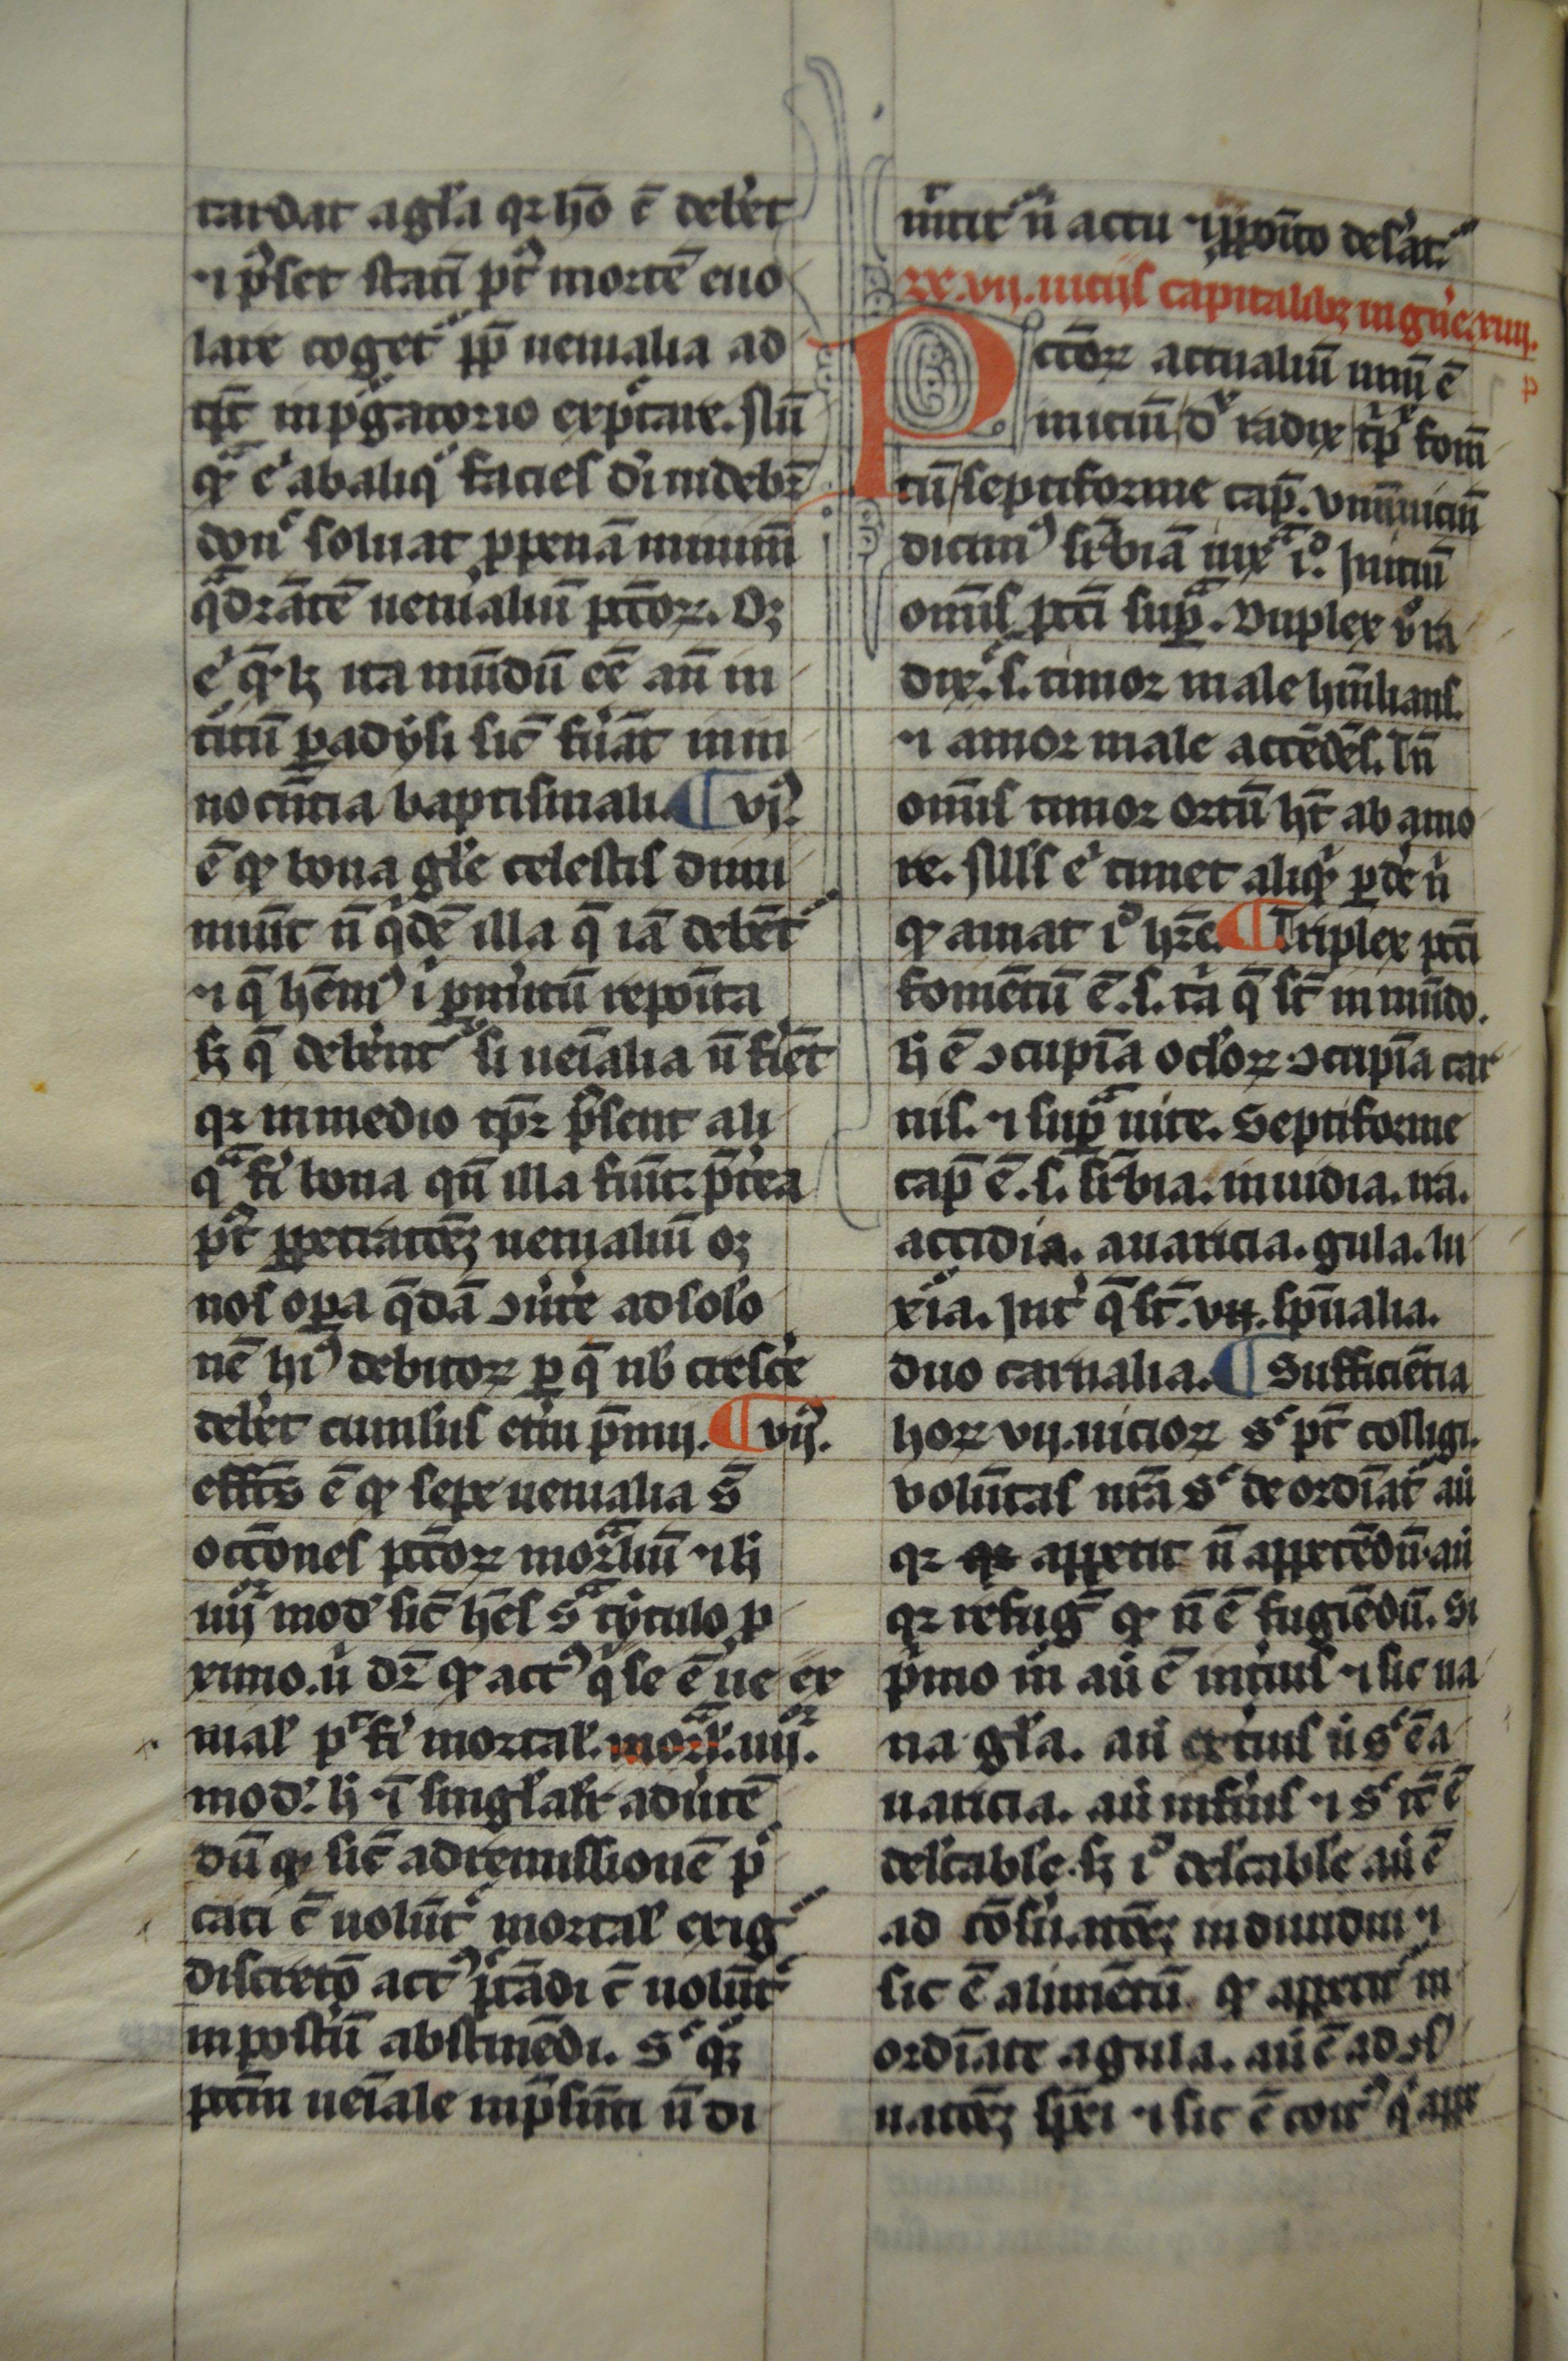 tardat a gła qꝛ hō c̄ deb̓et
⁊ p̓set statī pꝰt mortē euo
lare coget᷑ ꝓp̄ uenialia ad
t̄pꝰ in pᷣgatorio expͥare. Nū
qͣ eͥ ab aliqͦ facies dī uidebꝛ̄
don͛ soluat ꝓ penā minimū
qͣdrātē uenialiū pccōꝝ. Oꝫ
eͥ qͣ lꝫ ita mūdū eē aīā in
t̓itū ꝑadysi sic̄ fuͥāt in in
nocn̄tia baptismali. ¶ vj.ͫ
ē qͥ bona głe celestis dimi
nuūt n̄ qͥdē illa q̄ iā deb̄et᷑
⁊ q̄ hēmꝰ ī p̄miꝰtū repoīta
sꝫ q̄ deb̓ent᷑ si ueīalia n̄ fiēt
qꝛ in medio t̄pꝛ p̓sent ali
qͣ fi̓ bona qn̄ illa fiūt. p̄tea
pꝰt ꝓpetratōeꝫ ueniualiū oꝫ
nos oꝑa q̄dā ꝯuͥte ad solō
nē hiꝰ debitoꝝ ꝑ q̄ nb̓ cresc̓e
deb̓et cumlus et̓ni p̄mij. ¶ vij.ͫ
effc̄s ē qͥ sepe uenialia s̄
occōnes pccōꝝ morͣliū ⁊ h̓
iiijͦꝛ mod̓ sic̄ hēs s̄ͣ tytulo p
ximo. u̓ dꝛ̄ qͥ actꝰ qͥ se ē ue ex
mal̓ pͭ fi̓ mortal̓. morͣl̓. iiijͦꝛ.
mod̓. h̓ ⁊ ī singłał adut̓tē
dū qͥ sic̄ ad remissionē pͨ
cati c̄ uolūt͛ mortal̓ exigͭ᷑
discretō actꝰ pͨcādi c̄ uolūt͛
in postūꝰ abstinēdi. Sͨ qͥꝫ
pctīn ueīale inp̄sūti n̄ di
mͥtit᷑ n̄ actu ⁊ ꝓpoīto desͥat᷑
De .vij. uicijs capitalibꝫ in gn̓e. xiiij.
Pccōꝝ actualiū unū ē
iniciū / dꝰ radix / tͥp̄ fom̄
tū / septiforme cap̄. Vnū iniciū
dicimꝰ suͥbiā iuxͣ iͦ. Iniciū
om̄is pctī suꝑͣ. Duplex ū ra
dix. s. timor male huīlians.
⁊ amor male accēdēs. Tn̄
om̄is timor ortū ht̄ ab amo
re. Nłłs eͥ timet aliqͥ ꝑd̓e n̓
qͥ amat iͦ hꝛ̄e. ¶ Triplex pctī
fomētū ē. s. tͥa q̄ st̄ in mūdo.
h̓ ē ꝯcupīa oclōꝝ. ꝯcupīa car
nis. ⁊ suꝑͣ uite. Septiforme
cap̄ ē. s. suͥbia. inuidia. ira.
accidia. auaricia. gula. lu
xͥia. Int̓ q̄ st̄ .v. sp̄ualia.
duo carnalia. ¶ Sufficiētia
hoꝝ vij. uicioꝝ sͨ pt̄ colligi.
Volūtas nr̄a sͨ deordīat᷑ au̓
qꝛ appetit n̄ appetēdū. au̓
qꝛ refugͭ qͥ n̄ ē fugiēdū. Si
pͥmo m̊ au̓ ē int̓ius ⁊ sic ua
na gła. au̓ ext̓ius n̓ sͨ ē a
uaricia. au̓ infͥius ⁊ sͨ it̄ē ē
delc̄able. sꝫ iͦ delc̄able au̓ ē
ad cōsu̓atōeꝫ indiuidui ⁊
sic ē alimētū qͥ appetit᷑ in
ordīate a gula. au̓ ē ad ꝯs̓
uatōeꝫ spēi ⁊ sic ē coitꝰ qͥ appe